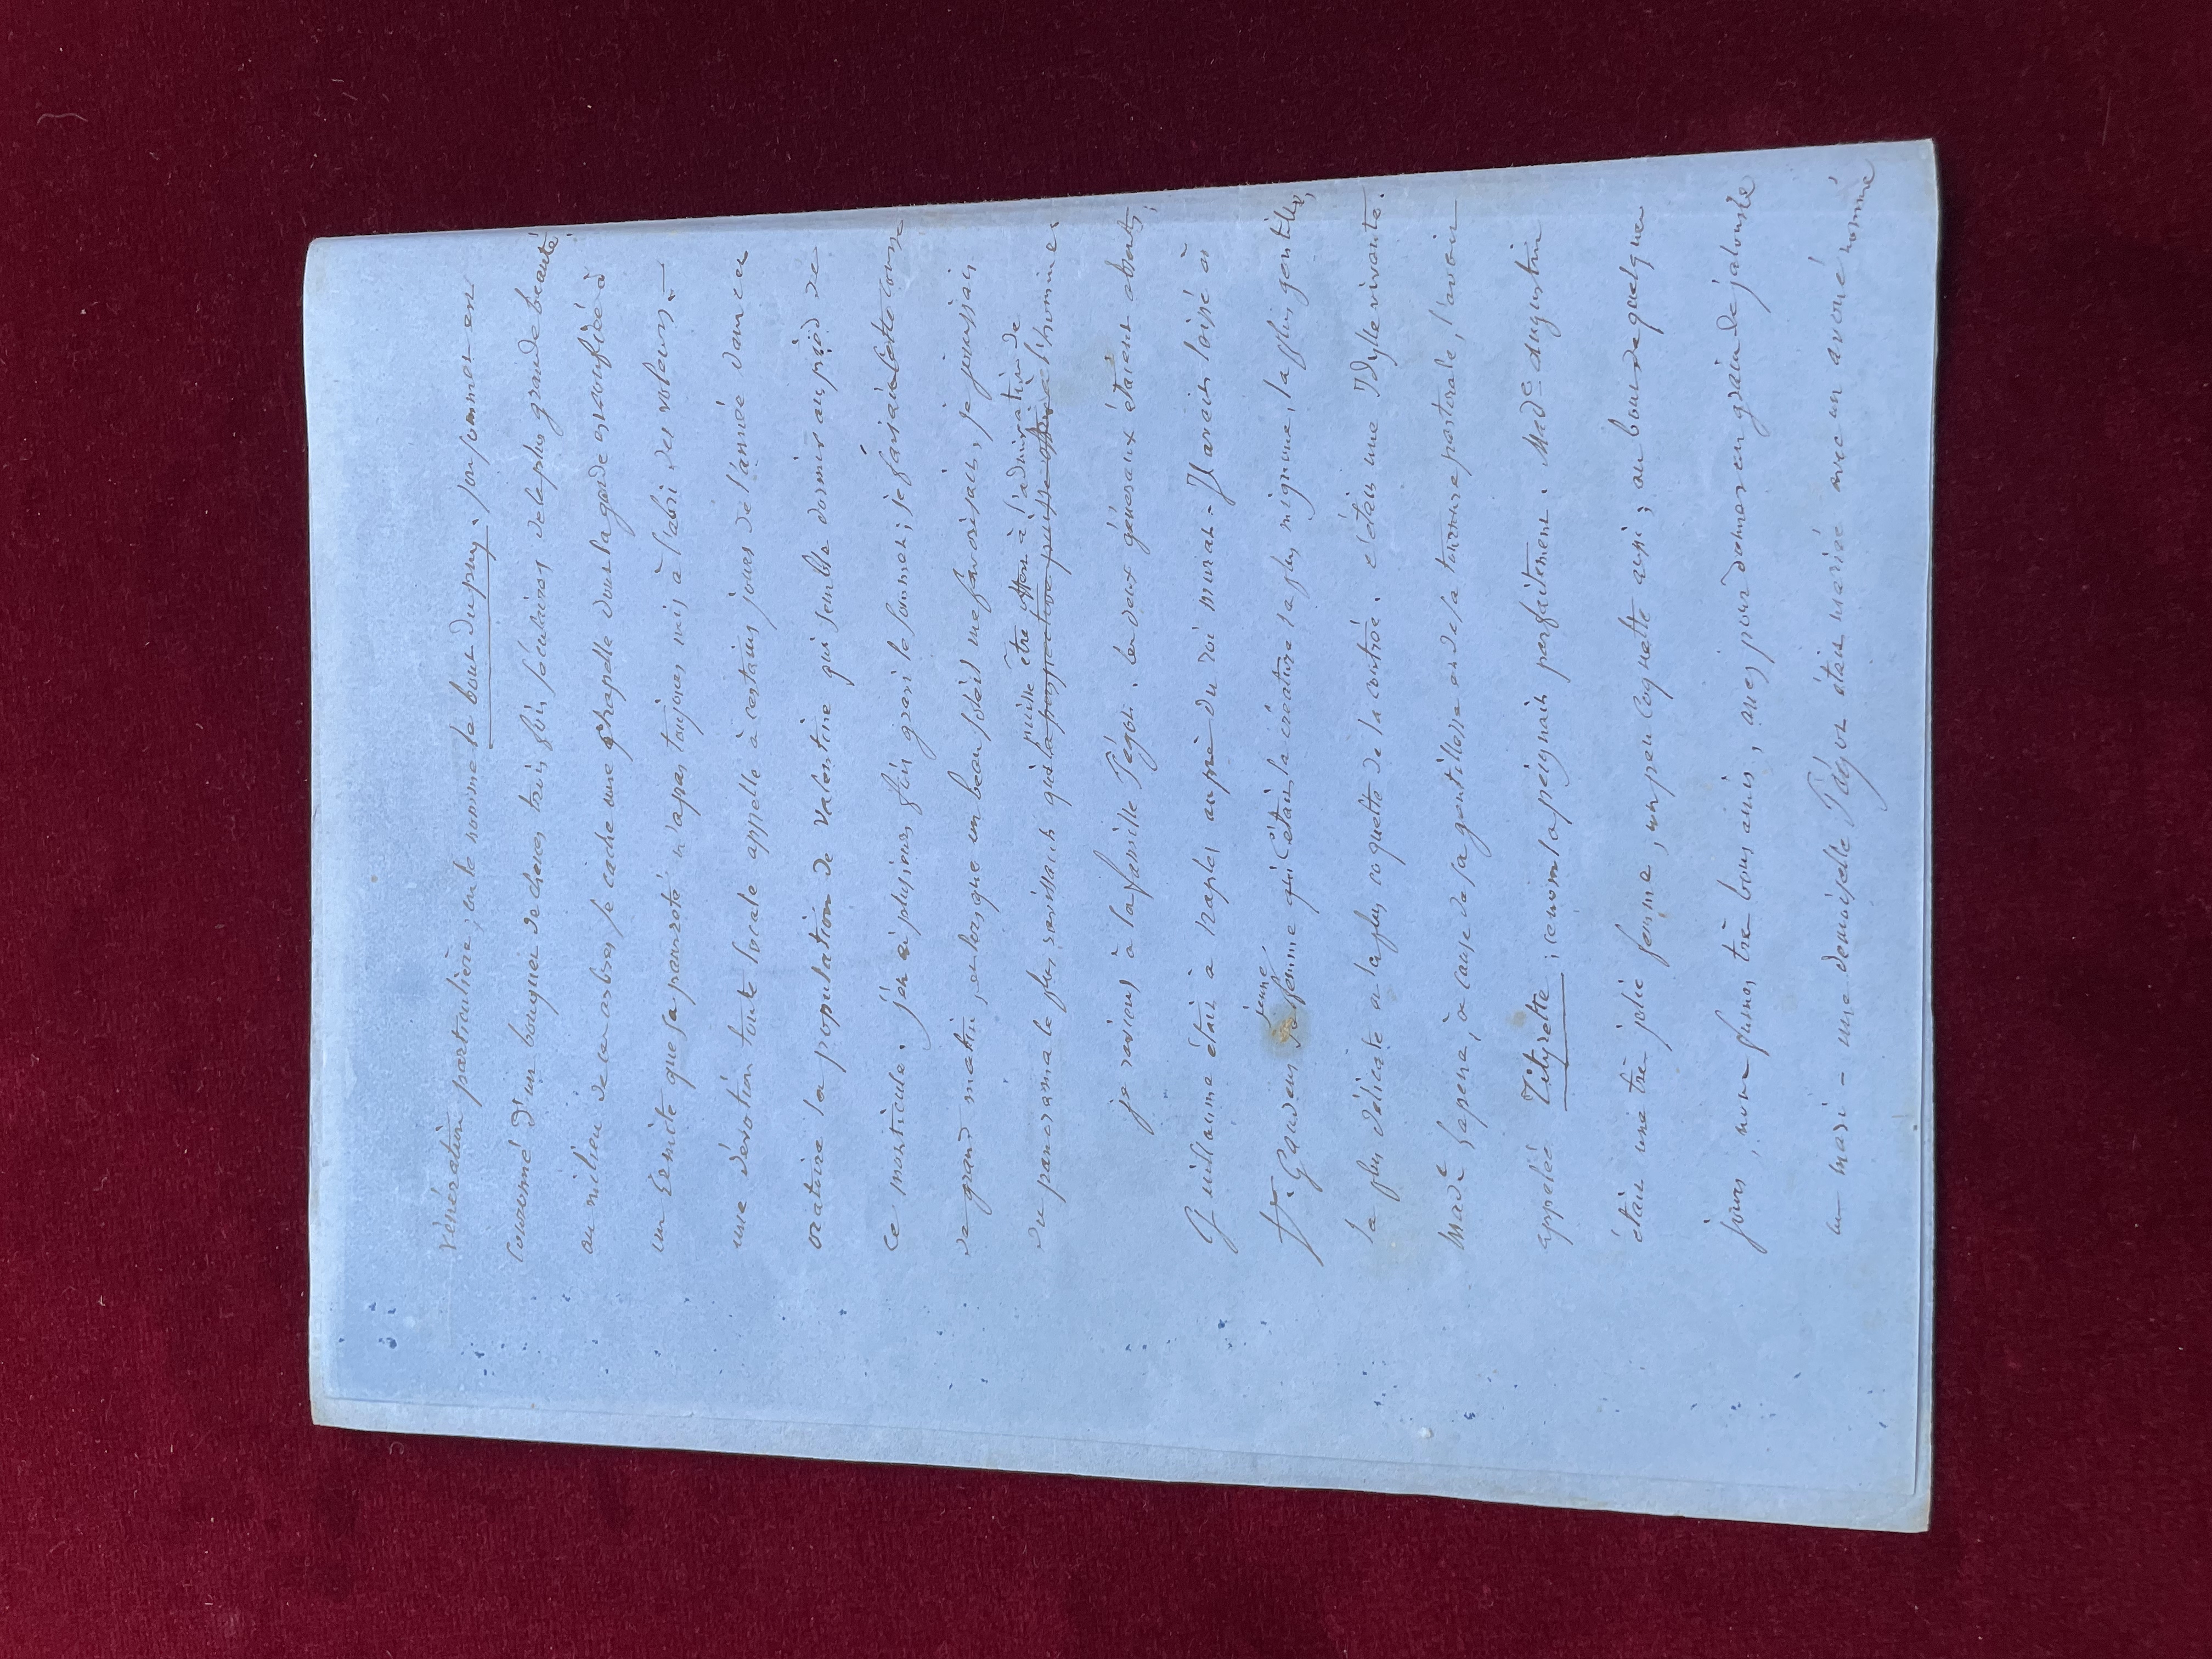 vénération particulière, on le nomme le bout du puy. son sommet est
couronné d'un bouquet de chênes trois fois séculaires de la plus grande beauté.
au milieu de ces arbres se cache une chapelle dont la garde est confiée à
un Ermite que sa pauvreté n'a pas toujours mis à l'abri des voleurs.
une dévotion toute locale appelle à certains jours de l'année dans cet
oratoire la population de Valentine qui semble dormir au pied de
ce monticule. j'en ai plusieurs fois gravi le sommet; je faisais cette course
de grand matin, et lorsque un beau soleil me favorisait, je jouissais
puisse être offert à l'admiration de
du panorama le plus ravissant que la perspective puisse offrir à l'homme.
je reviens à la famille Pégot. les deux généraux étaient absents;
Guillaume était à Naples auprès du roi murat. Il avait laissé à
jeune
St. Gaudens sa femme qui c'était la créature la plus mignonne, la plus gentille,
la plus délicate et la plus coquette de la contrée. c'était une Idylle vivante.
Made Lapene, à cause de sa gentillesse et de sa tournure pastorale, l'avait
appelée Tityrette; ce nom la peignait parfaitement. Made Augustin
était une très jolie femme, un peu coquette aussi; au bout de quelques
jours, nous fumes très bons amis, assez pour donner un grain de jalousie
au mari - une demoiselle Pégot était mariée avec un avoué nommé